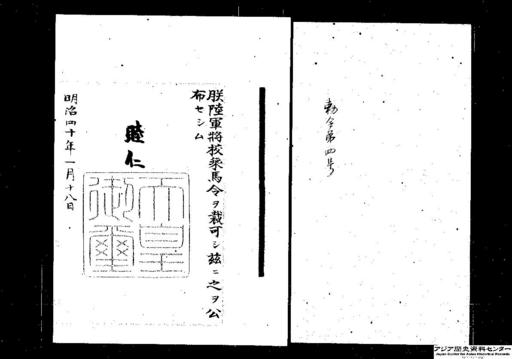 勅令第四号
朕陸軍将校乗馬令ヲ裁可シ茲ニ之ヲ公
布セシム
睦仁
天皇
御璽
明治四十年一月十八日
アジア歴史資料センター
Japan Center for Asian Historical Records